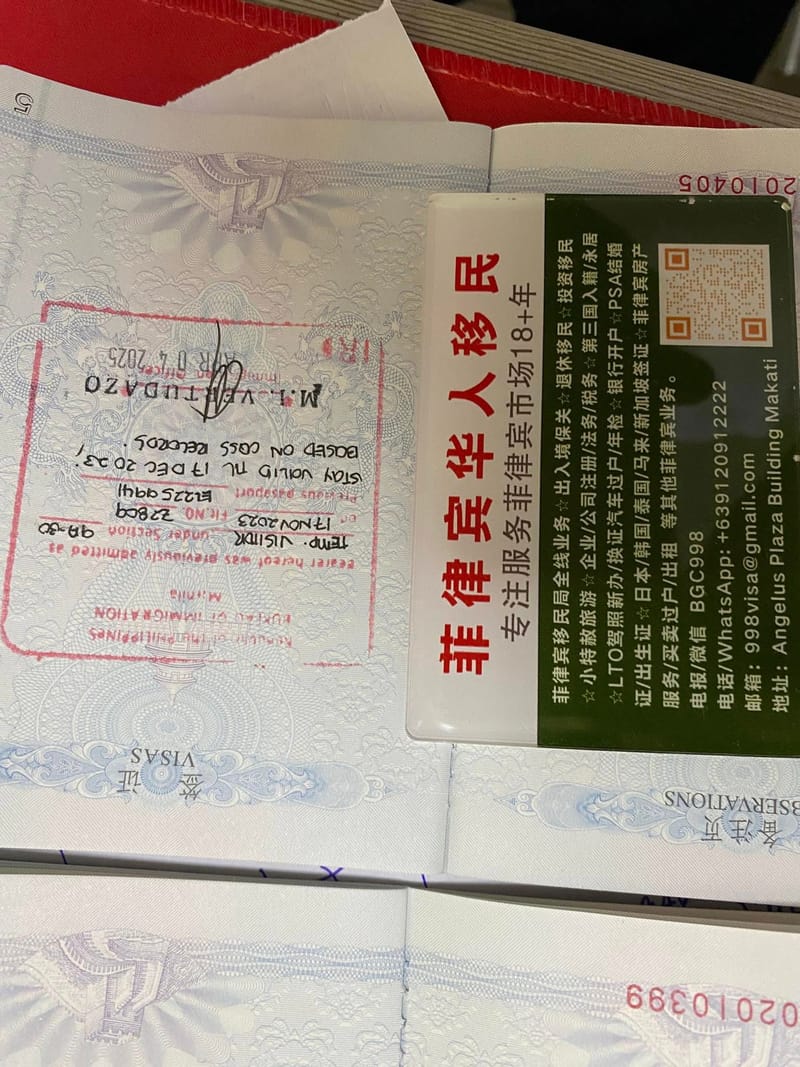 菲律宾华人移民
专注服务菲律宾市场18+年
菲律宾移民局全线业务☆出入境保关☆退休移民☆投资移民
☆小特赦旅游☆企业/公司注册/法务/税务☆第三国入籍/永居
☆LTO驾照新办/换证汽车过户/年检☆银行开户☆PSA结婚
证/出生证☆日本/韩国/泰国/马来/新加坡签证☆菲律宾房产
服务/买卖过户/出租 等其他菲律宾业务。
电报/微信 BGC998
电话/WhatsApp: +639120912222
邮箱: 998visa@gmail.com
地址: Angelus Plaza Building Makati
签证
VISAS
Republic of the PHILIPPINES
BUREAU OF IMMIGRATION
Manila
Bearer hereof was previously admitted as
TEMP. VISITOR under Section 9A-30
on 17 NOV 2023 Flt.NO. Z2809
Previous passport
STAY VALID TIL 17 DEC 2023,
BASED ON CGSS RECORDS.
M.L. VERTUDAZO
Immigration Officer
APR 04 2025
备注页
OBSERVATIONS
2010405
02010399